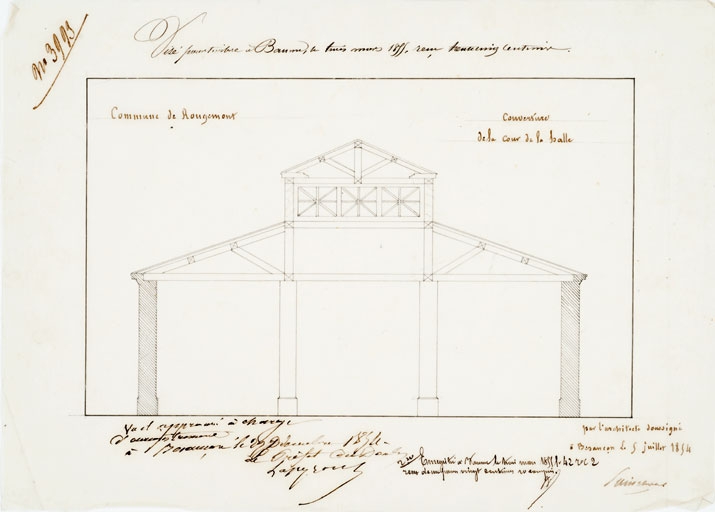 no 3993
Visé pour timbre à Baume le trois mars 1855, reçu centimes.
Commune de Rougemont
Couverture
de la cour de la halle
Vu et approuvé à charge
d'enregistrement
à Besançon le 29 Décembre 1854
Le Préfet du Doubs
par l'architecte soussigné
à Besançon le 5 juillet 1854
Enregistré à Baume le trois mars 1855 f. 42 v c 2
reçu vingt centimes